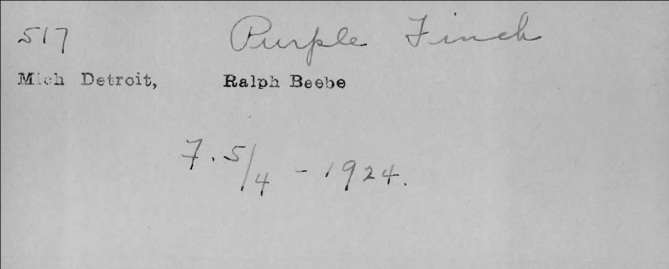 517 Purple Finch
Mich Detroit, Ralph Beebe
7. 5/4 - 1924.